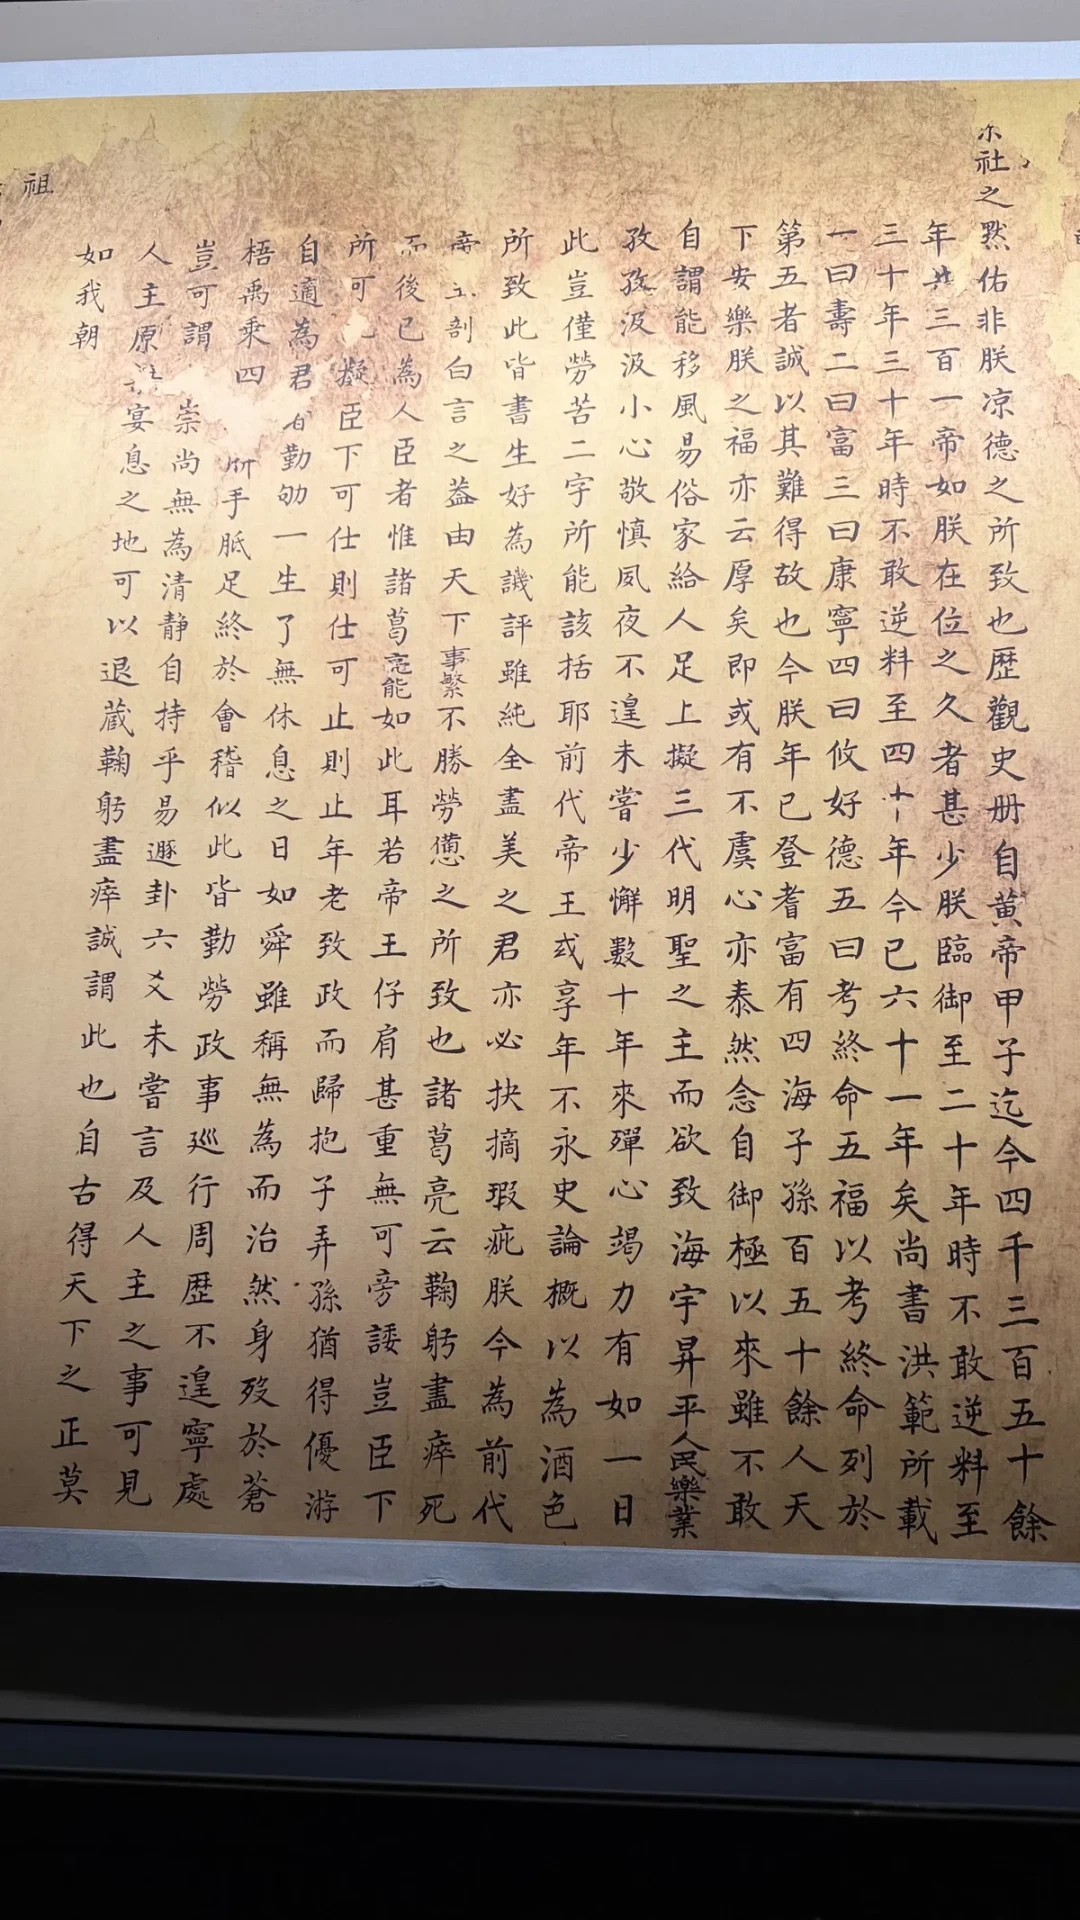 社之默佑非朕凉德之所致也歷觀史册自黃帝甲子迄今四千三百五十餘
年共三百一帝如朕在位之久者甚少朕臨御至二十年時不敢逆料至
三十年三十年時不敢逆料至四十年今已六十一年矣尚書洪範所載
一曰壽二曰富三曰康寧四曰攸好德五曰考終命五福以考終命列於
第五者誠以其難得故也今朕年已登耆富有四海子孫百五十餘人天
下安樂朕之福亦云厚矣即或有不虞心亦泰然念自御極以來雖不敢
自謂能移風易俗家給人足上擬三代明聖之主而欲致海宇昇平人民樂業
孜孜汲汲小心敬慎夙夜不遑未嘗少懈數十年來殫心竭力有如一日
此豈僅勞苦二字所能該括耶前代帝王或享年不永史論概以為酒色
所致此皆書生好為譏評雖純全盡美之君亦必抉摘瑕疵朕今為前代
帝剖白言之葢由天下事繁不勝勞憊之所致也諸葛亮云鞠躬盡瘁死
而後已為人臣者惟諸葛亮能如此耳若帝王仔肩甚重無可旁諉豈臣下
所可擬臣下可仕則仕可止則止年老致政而歸抱子弄孫猶得優游
自適為君者勤劬一生了無休息之日如舜雖稱無為而治然身歿於蒼
梧禹乘四手胝足終於會稽似此皆勤勞政事巡行周歷不遑寧處
豈可謂崇尚無為清靜自持乎易遯卦六爻未嘗言及人主之事可見
人主原宴息之地可以退藏鞠躬盡瘁誠謂此也自古得天下之正莫
如我朝
祖